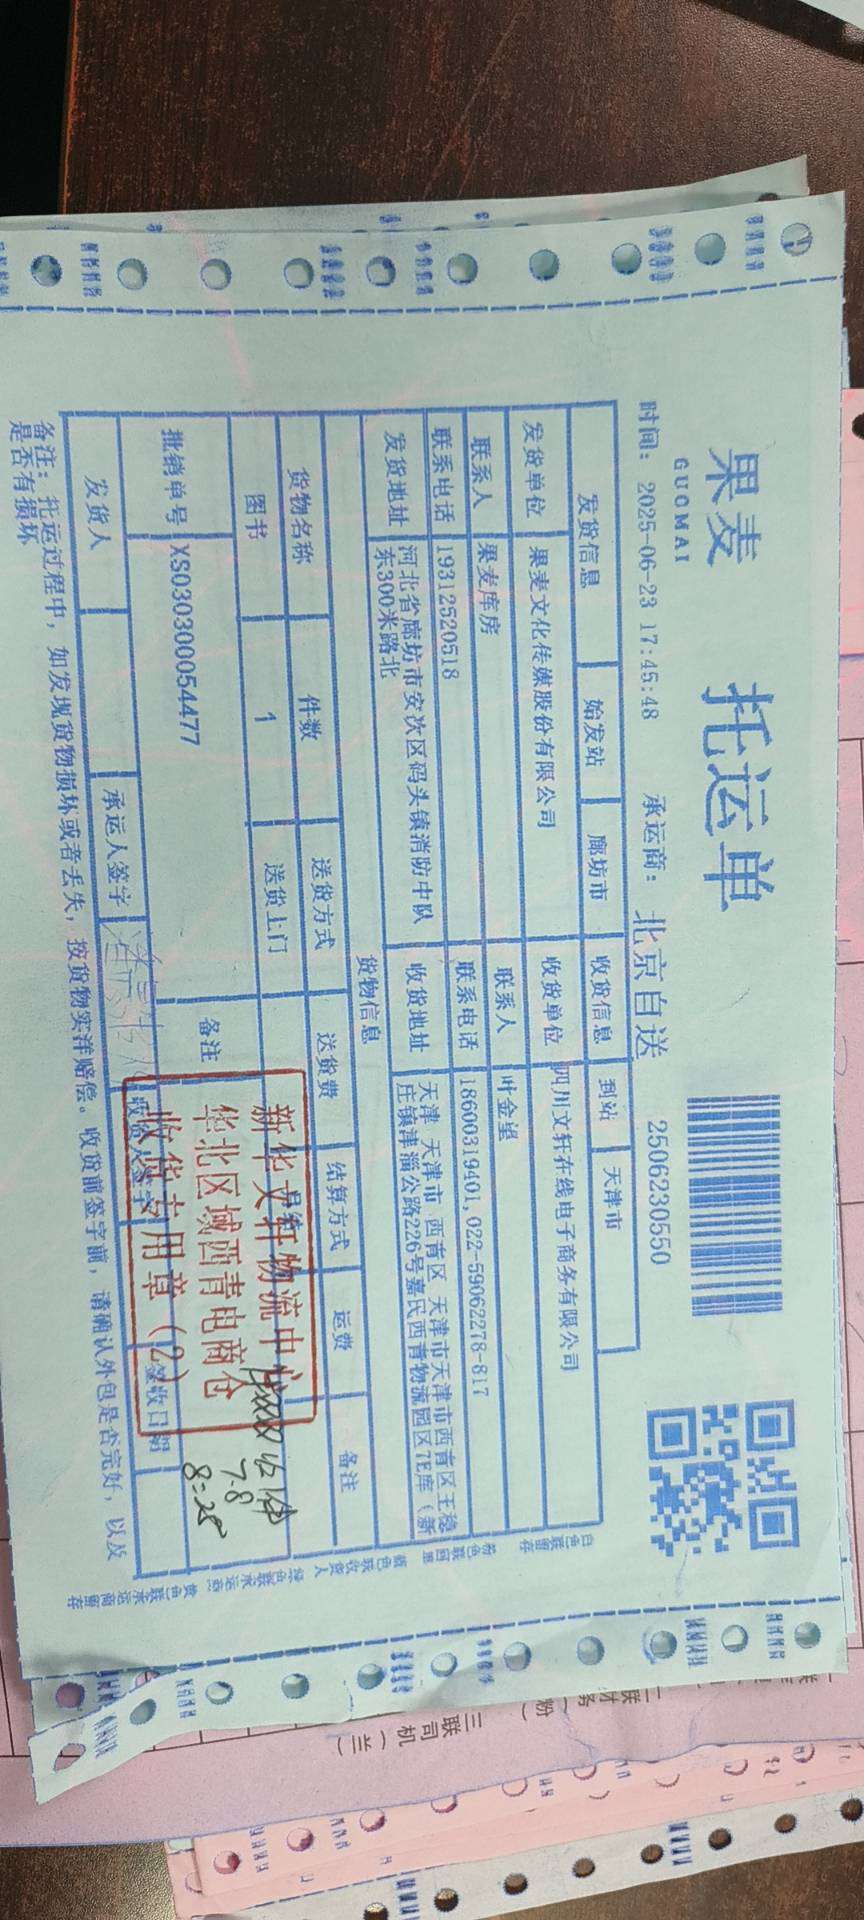 果麦 托运单
GUOMAI
时间: 2025-06-23 17:45:48 承运商: 北京自送 2506230550
发货信息 始发站 廊坊市 收货信息 到站 天津市
发货单位 果麦文化传媒股份有限公司 收货单位 四川文轩在线电子商务有限公司
联系人 果麦库房 联系人 叶金望
联系电话 19312520518 联系电话 18600319401,022-59062278-817
发货地址 河北省廊坊市安次区码头镇消防中队东300米路北 收货地址 天津 天津市 西青区 天津市天津市西青区王稳庄镇津淄公路226号嘉民西青物流园区7E库（新
货物信息
货物名称 件数 送货方式 送货费 结算方式 运费 备注
图书 1 送货上门
批销单号 XS030300054477 备注
发货人 承运人签字 收货人签字 签收日期
备注: 托运过程中，如发现货物损坏或者丢失，按货物实洋赔偿。收货前签字前，请确认外包是否完好，以及
是否有损坏
新华文轩物流中心
华北区域西青电商仓
收货专用章(2)
7.8
8:28
白色联留存
粉色联回单
蓝色联收货人
绿色联承运商
黄色联承运商留存
二联财务（粉
三联司机（兰）